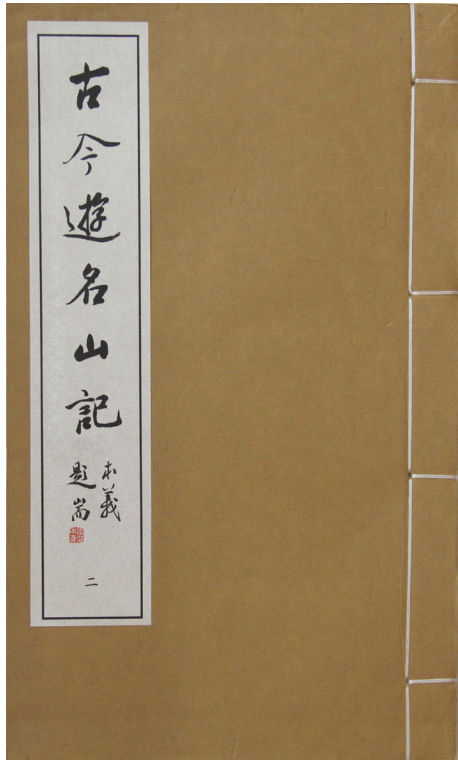 古今遊名山記
本義
題耑
二